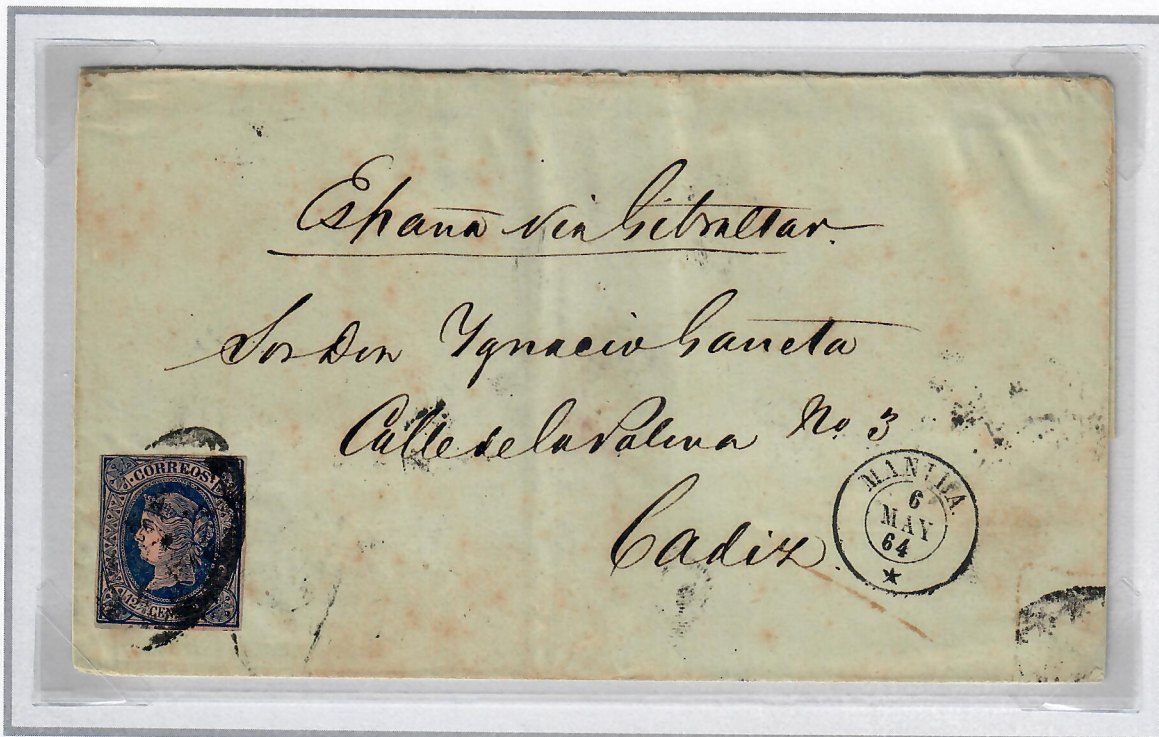 España via Gibraltar.
Sor Don Ygnacio Gaucta
Calle de la Palma No 3
Cadiz.
CORREOS
12 4/8 CEN
MANILA.
6
MAY
64